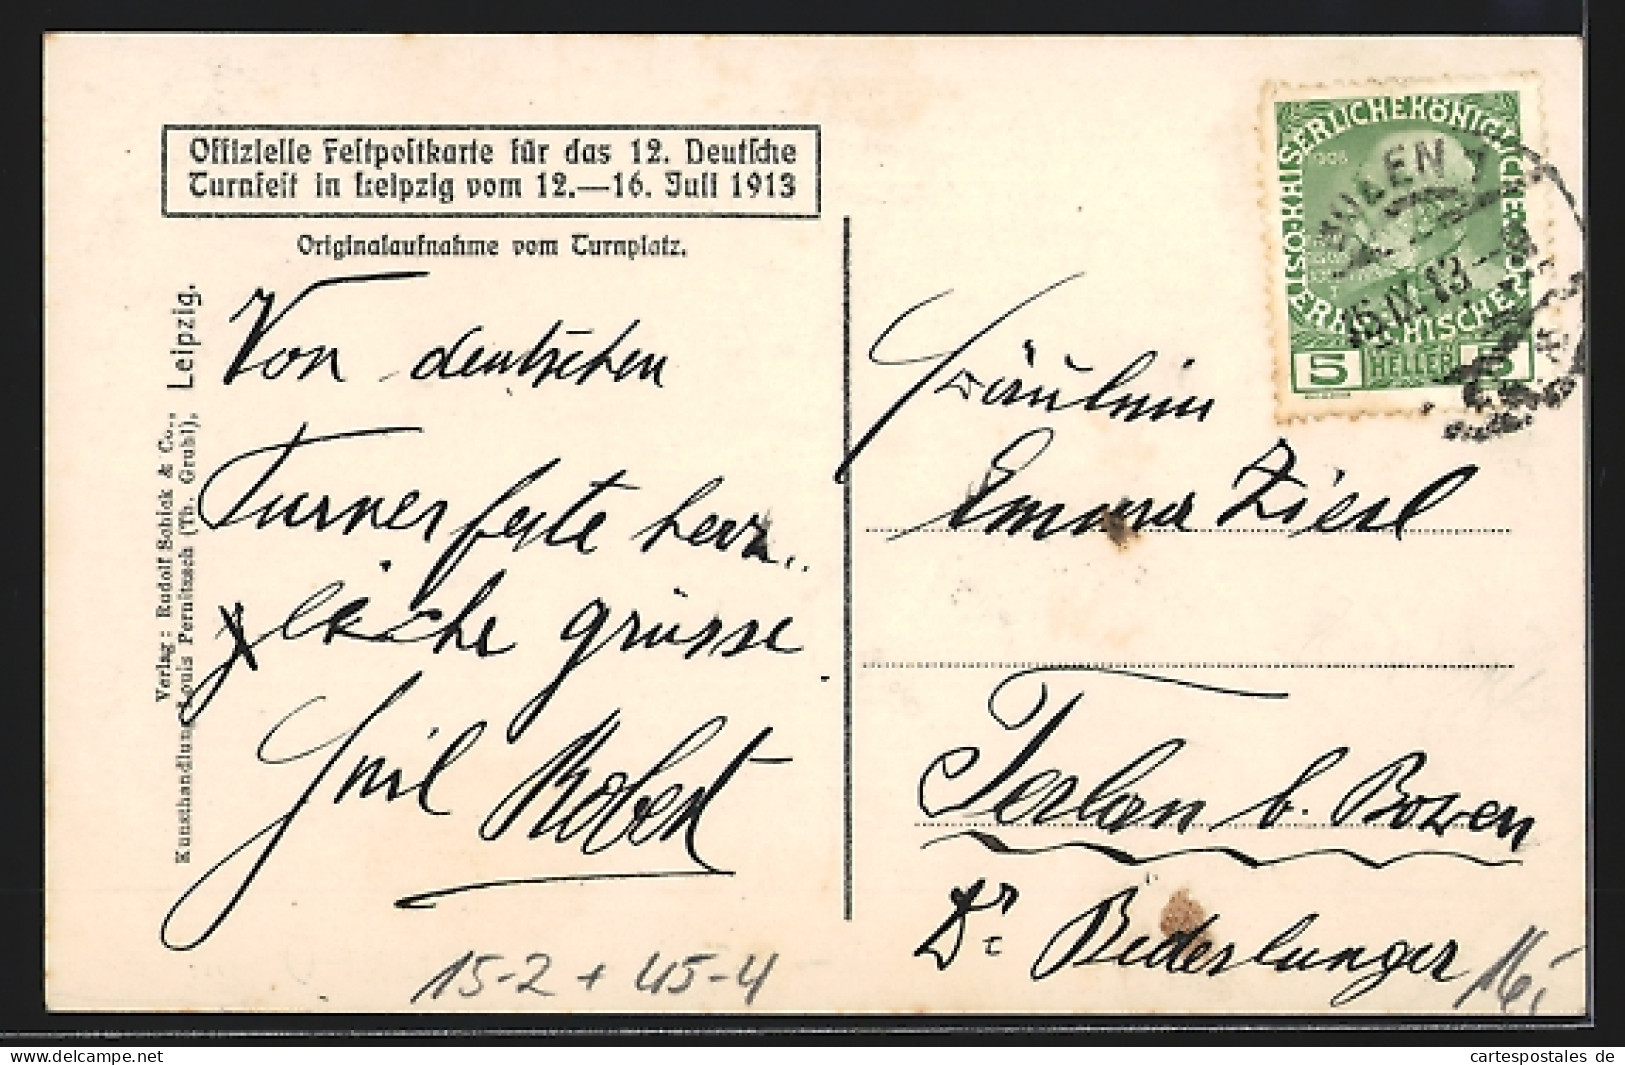 Offizielle Festpostkarte für das 12. Deutsche
Turnfest in Leipzig vom 12.—16. Juli 1913
Originalaufnahme vom Turnplatz.
Verlag: Rudolf Bobick & Co.,
Kunsthandlung Louis Pernitzsch (Th. Gruhl), Leipzig.
Von deutschen
Turnerfeste herz..
liche grüsse
Emil Robert
15-2 + 45-4
KAISERLICHEKÖNIGLICHE
ÖSTERREICHISCHE POST
1908
5 HELLER 5
15.IX.13
Fräulein
Emma Ziesl
Terlan b. Bozen
Dr. Biderlunger
cartespostales de